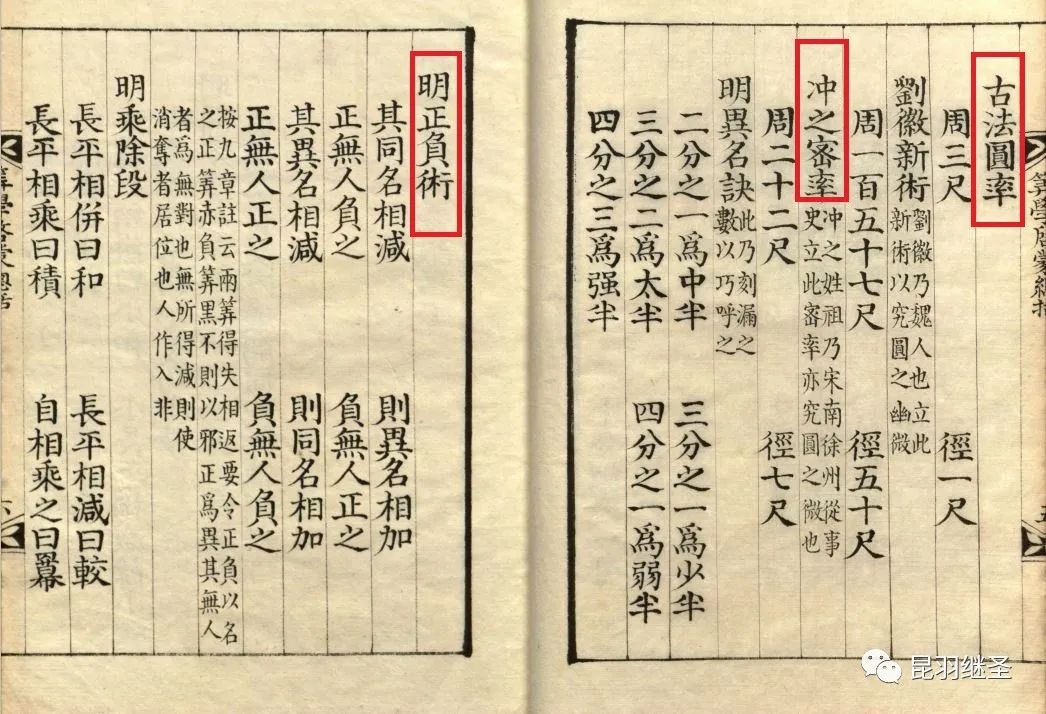 古法圓率
周三尺 徑一尺
劉徽新術 劉徽乃魏人也立此新術以究圓之幽微
周一百五十七尺 徑五十尺
冲之密率 冲之姓祖乃宋南徐州從事史立此密率亦究圓之微也
周二十二尺 徑七尺
明異名訣 此乃刻漏之數以巧呼之
二分之一爲中半 三分之一爲少半
三分之二爲太半 四分之一爲弱半
四分之三爲强半
明正負術
其同名相減 則異名相加
正無人負之 負無人正之
其異名相減 則同名相加
正無人正之 負無人負之
按九章註云兩筭得失相返要令正負以名之正筭赤負筭黑不則以邪正爲異其無人者爲無對也無所得減則使消奪者居位也人作入非
明乘除段
長平相併曰和 長平相減曰較
長平相乘曰積 自相乘之曰冪
六
昆羽继圣